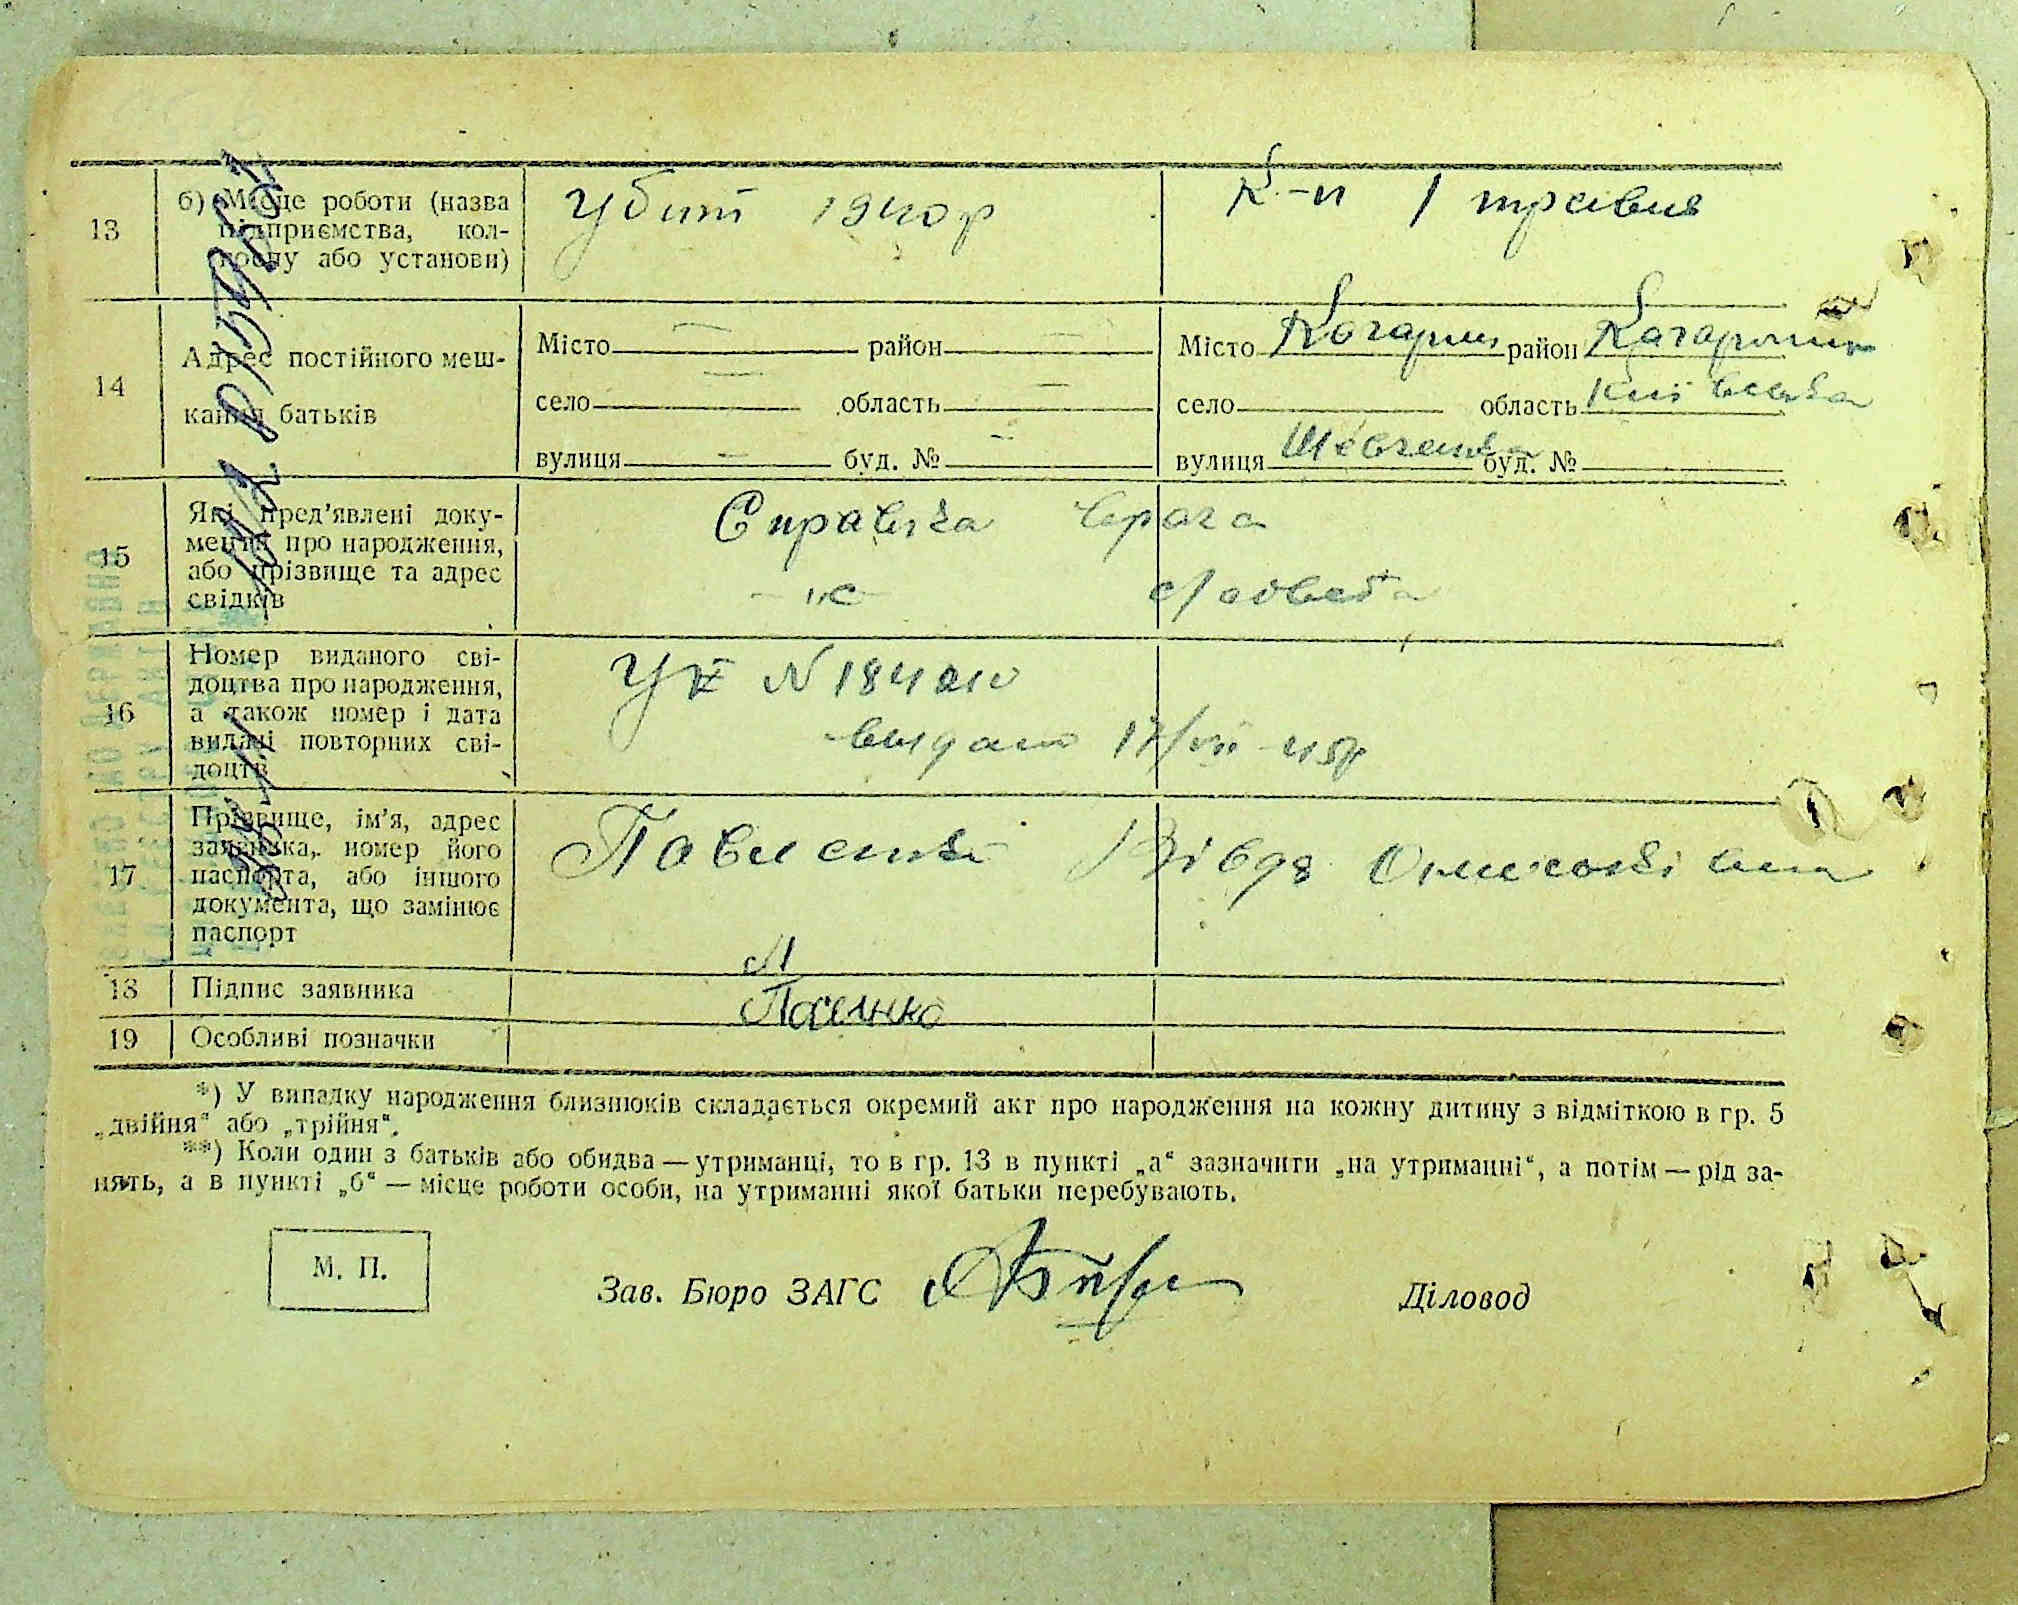 13 б) Місце роботи (назва підприємства, колгоспу або установи)
Убит 1940р
К-п 1 травня
14 Адрес постійного мешкання батьків
Місто район
село область
вулиця буд. №
Місто Кагарлик район Кагарлик
село область Київська
вулиця Шевченка буд. №
15 Які пред’явлені документи про народження, або прізвище та адрес свідків
Справка врача
-"- с/совета
16 Номер виданого свідоцтва про народження, а також номер і дата видачі повторних свідоцтв
N
видано 17/VII 45р
17 Прізвище, ім’я, адрес заявника, номер його паспорта, або іншого документа, що замінює паспорт
Павленко Вівдя
18 Підпис заявника
19 Особливі позначки
*) У випадку народження близнюків складається окремий акт про народження на кожну дитину з відміткою в гр. 5
„двійня“ або „трійня“.
**) Коли один з батьків або обидва — утриманці, то в гр. 13 в пункті „а“ зазначити „на утриманні“, а потім — рід за-
нять, а в пункті „б“ — місце роботи особи, на утриманні якої батьки перебувають.
М. П.
Зав. Бюро ЗАГС
Діловод